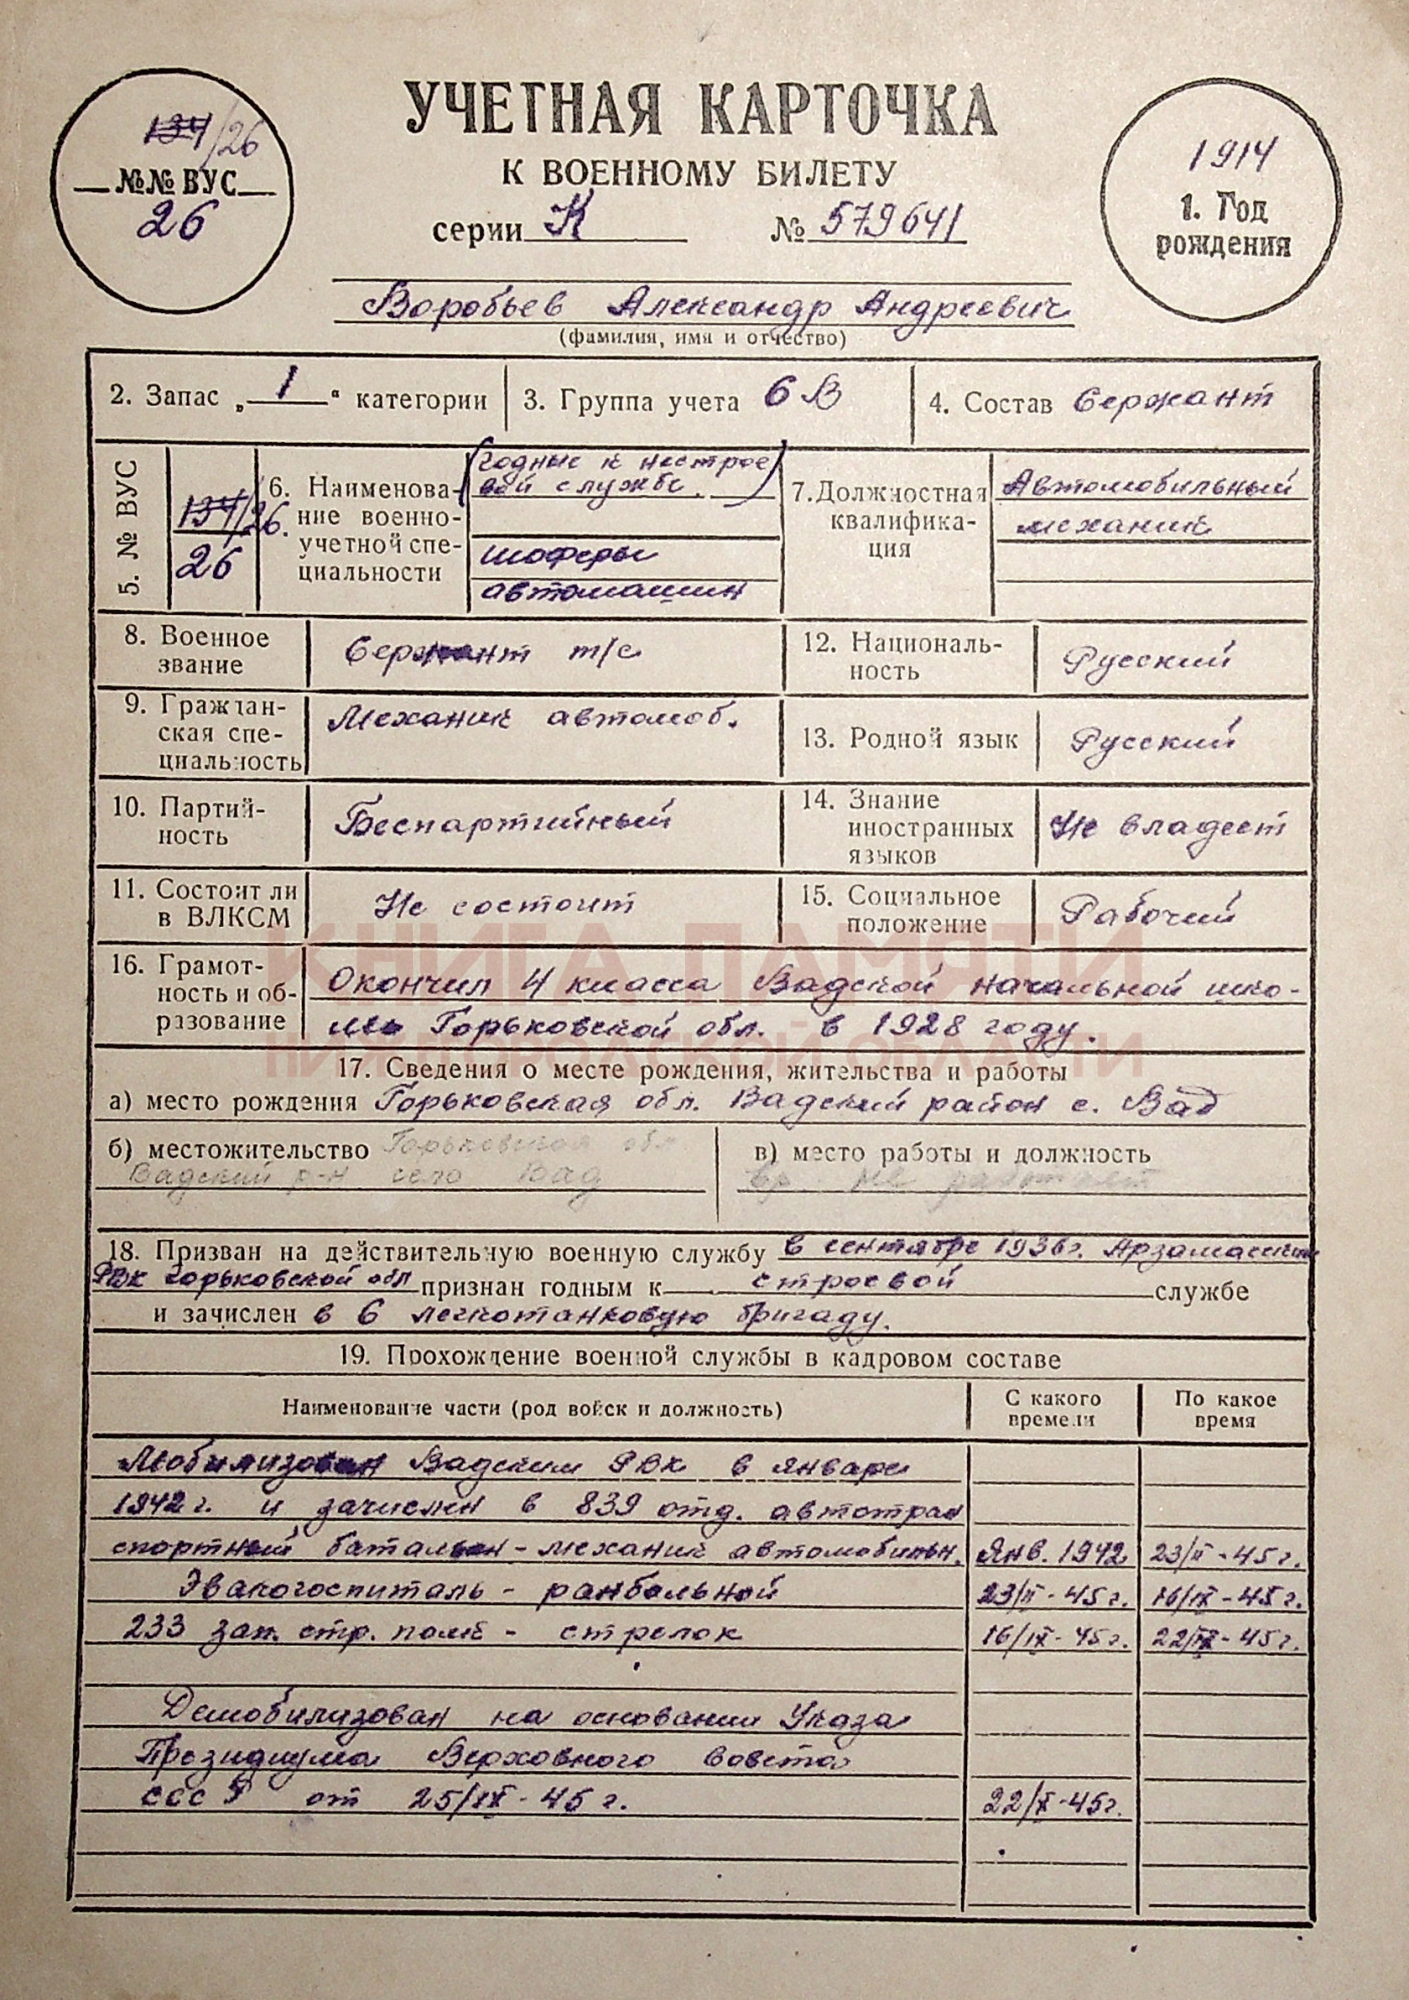 УЧЕТНАЯ КАРТОЧКА
К ВОЕННОМУ БИЛЕТУ
серии К № 579641
134/26
№№ ВУС
26
1914
1. Год
рождения
Воробьев Александр Андреевич
(фамилия, имя и отчество)
2. Запас „1“ категории
3. Группа учета 6 В
4. Состав Сержант
5. № ВУС
134/26.
26
6. Наименова-
ние военно-
учетной спе-
циальности
(годные к нестрое
вой службе.)
шоферы
автомашин
7. Должностная
квалифика-
ция
Автомобильный
механик
8. Военное
звание
Сержант т/с
12. Националь-
ность
Русский
9. Граждан-
ская спе-
циальность
Механик автомоб.
13. Родной язык
Русский
10. Партий-
ность
Беспартийный
14. Знание
иностранных
языков
Не владеет
11. Состоит ли
в ВЛКСМ
Не состоит
15. Социальное
положение
Рабочий
КНИГА ПАМЯТИ
НИЖЕГОРОДСКОЙ ОБЛАСТИ
16. Грамот-
ность и об-
разование
Окончил 4 класса Вадской начальной шко-
лы Горьковской обл. в 1928 году.
17. Сведения о месте рождения, жительства и работы
а) место рождения Горьковская обл. Вадский район с. Вад
б) местожительство Горьковская обл
Вадский р-н село Вад
в) место работы и должность
вр. не работает
18. Призван на действительную военную службу в сентябре 1936г. Арзамасским
РВК Горьковской обл признан годным к строевой службе
и зачислен в 6 легкотанковую бригаду.
19. Прохождение военной службы в кадровом составе
Наименование части (род войск и должность)
С какого
времени
По какое
время
Мобилизован Вадским РВК в январе
1942 г. и зачислен в 839 отд. автотран
спортный батальон - механик автомобильн. Янв. 1942 23/II - 45 г.
Эвакогоспиталь - ранбольной 23/II - 45 г. 16/IX - 45 г.
233 зап. стр. полк - стрелок 16/IX - 45 г. 22/XI - 45 г.
Демобилизован на основании Указа
Президиума Верховного Совета
СССР от 25/IX - 45 г. 22/XI - 45 г.